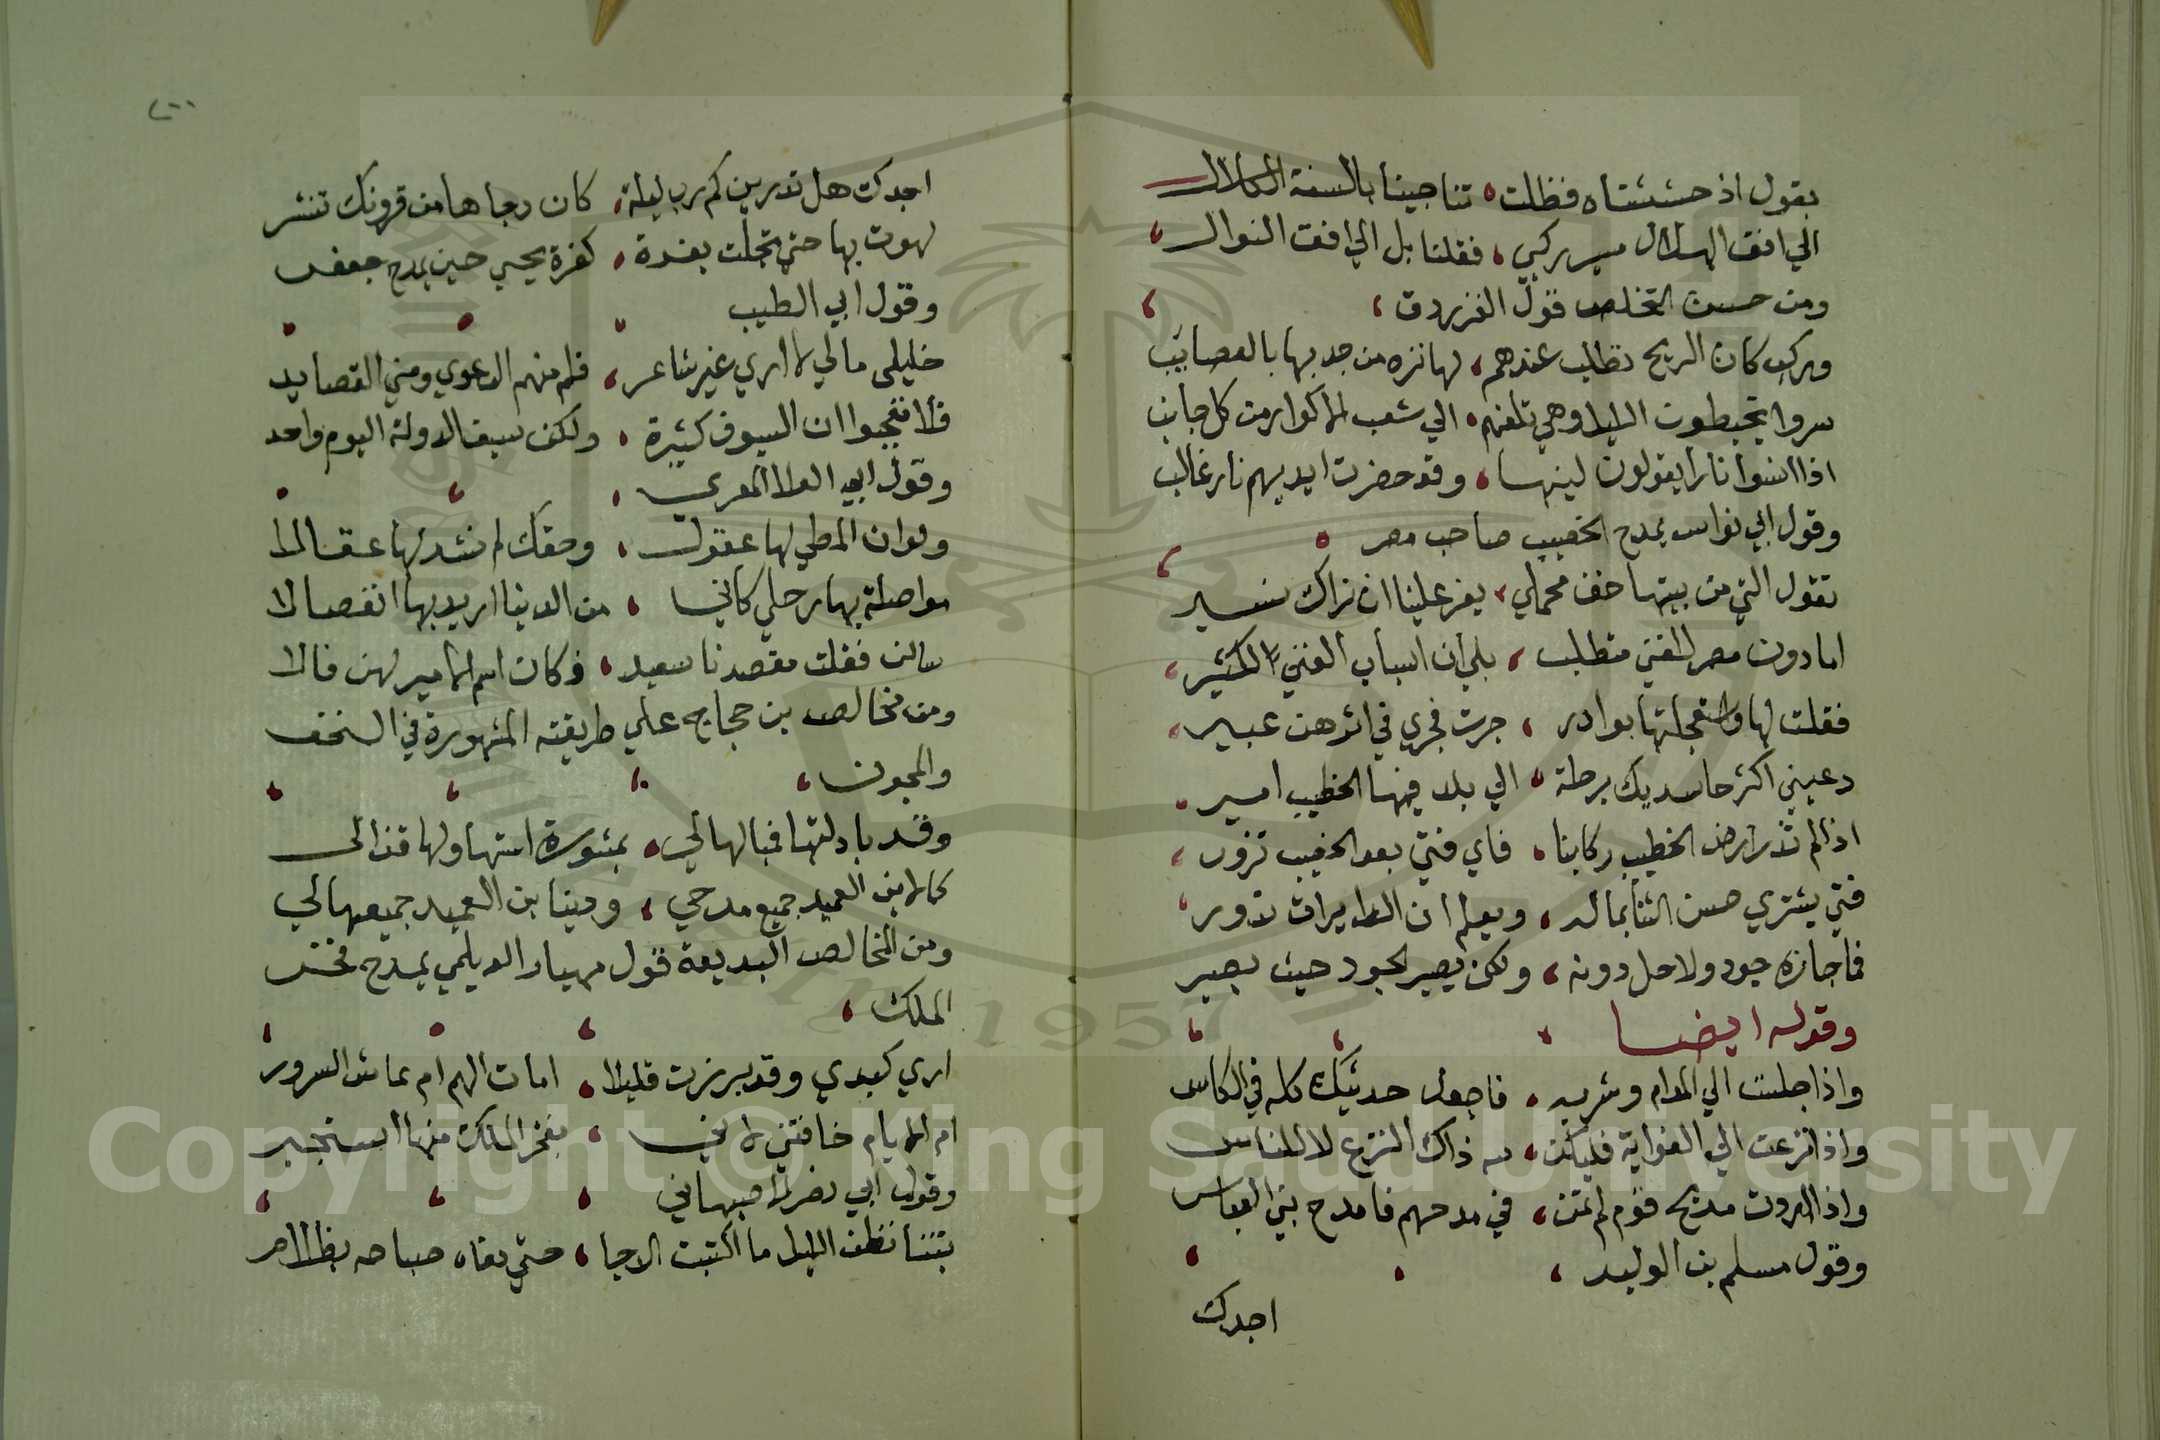 يقول اذ حثثناه فظلت، تناجينا بالسنة الكلال
الي افق الهلال مسير ركبي، فقلنا بل الي افق النوال،
ومن حسن التخلص قول الفرزدق،
وركب كان الريح تطلب عندهم، لها تره من جدبها بالعصايب
سروا يخبطون الليل وهي تلفهم، الي شعب الاكوار من كل جانب
اذا انسوا نارا يقولون ليتها، وقد حضرت ايديهم نار غالب
وقول ابي نواس يمدح الخصيب صاحب مصر
تقول التي من بيتها خف محملي، يعز علينا ان نراك تسير
اما دون مصر للغني متطلب، بلي ان اسباب الغني لكثير،
فقلت لها واستعجلتها بوادر، جرت فجري في اثرهن عبير،
دعيني اكثر حاسديك برحلة، الي بلد فيها الخطيب امير،
اذا لم تزر ارض الخطيب ركابنا، فاي فتي بعد الخصيب تزور،
فتي يشتري حسن الثنا بماله، ويعلم ان الدايرات تدور،
فما جازه جود ولا حل دونه، ولكن يصير الجود حيث يصير
وقوله ايضا
واذا جلست الي المدام وشربه، فاجعل حديثك كله في الكاس
واذا نزعت الي الغواية فليكن، لله ذاك النزع لا للناس
واذا اردت مديح قوم لم تمن، في مدحهم فامدح بني العباس
وقول مسلم بن الوليد،
اجدك
٢٠٠
اجدك هل تدرين كم رب ليلة، كان دجاها من قرونك تنشر
لهوت بها حتي تجلت بغرة، كغرة يحيي حين يمدح جعفر
وقول ابي الطيب
خليلي مالي لا اري غير شاعر، فلم منهم الدعوي ومني القصايد
فلا تعجبوا ان السيوف كثيرة، ولكن سيف الدولة اليوم واحد
وقول ابي العلا المعري،
ولو ان المطي لها عقول، وحقك لم نشد لها عقالا
مواصلة بها رحلي كاني، من الدنيا اريد بها انفصالا
سالن فقلت مقصدنا سعيد، فكان اسم الامير لهن فالا
ومن مخالص بن حجاج علي طريقته المشهورة في السخف
والمجون،
وقد بادلتها فمبالها لي، بمشورة استها ولها قذالي
كما لابن العميد جميع مدحي، ودنيا بن العميد جميعها لي
ومن المخالص البديعة قول مهيار الديلمي يمدح فخر
الملك،
اري كبدي وقد بردت قليلا، امات الهم ام عاش السرور
ام الايام خافتني لاني، بفخر الملك منها استجير
وقول ابي نصر الاصبهاني
بتنا نظن الليل ما اكتبت الدجا، حتي بقاه صباحه بظلام